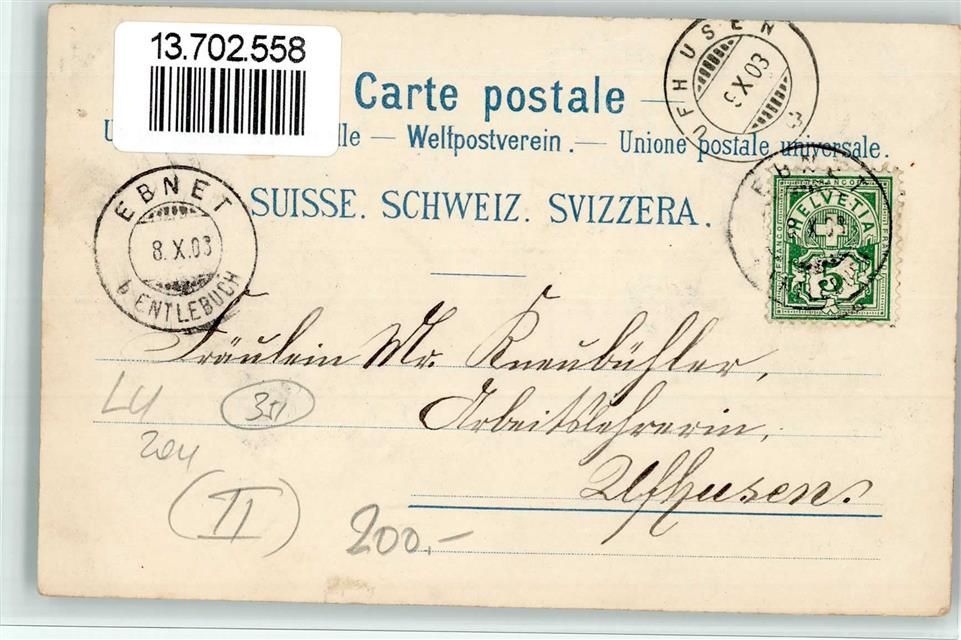 13.702.558
Carte postale
Weltpostverein. — Unione postale universale.
SUISSE. SCHWEIZ. SVIZZERA.
UFHUSEN
9.X.03
EBNET
8.X.03
b. ENTLEBUCH
EBNET
X.03
FRANCO
HELVETIA
FRANCO FRANCO
5
Fräulein Mr. Kneubühler,
Arbeitslehrerin,
Ufhusen.
LU
204
351
II
200.-